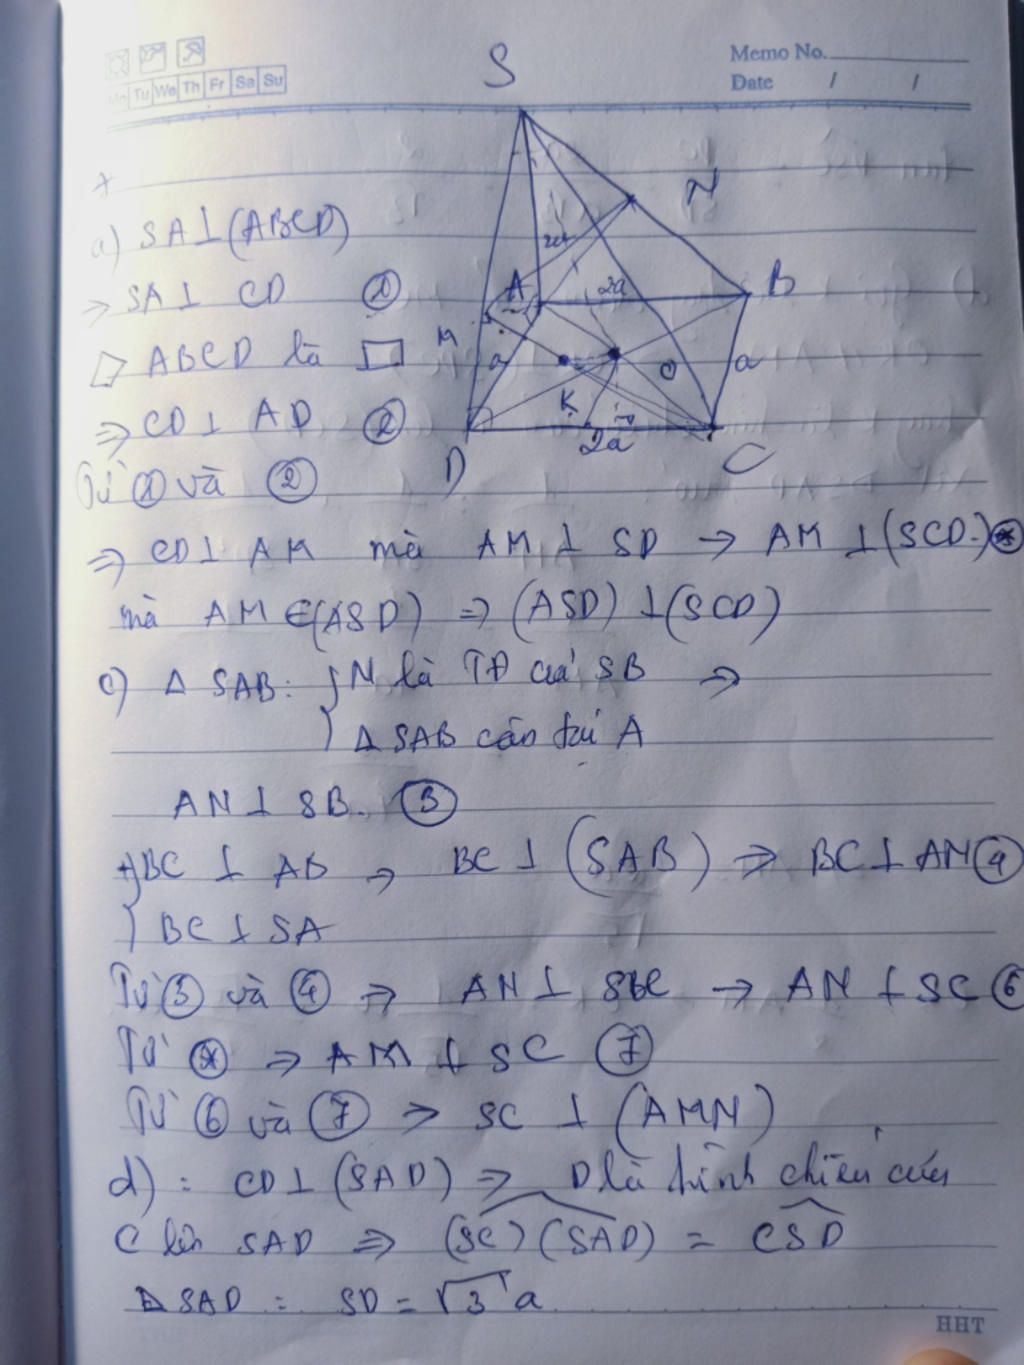 Memo No.
Mo Tu We Th Fr Sa Su
Date / /
S
N
2a
A
2a
B
M
a
O
a
K
D
2a
C
a) SA⊥(ABCD)
→ SA⊥ CD ①
▱ ABCD là ▭
⇒ CD⊥ AD ②
Từ ① và ②
⇒ CD⊥ AM mà AM ⊥ SD → AM ⊥(SCD) ⊛
mà AM ∈(ASD) ⇒ (ASD) ⊥(SCD)
c) Δ SAB: { N là TĐ của SB ⇒
Δ SAB cân tại A
AN⊥ SB. ③
+} BC ⊥ AB → BC ⊥ (SAB) ⇒ BC⊥AN ④
BC ⊥ SA
Từ ③ và ④ ⇒ AN⊥ SBC → AN ⊥ SC ⑥
Từ ⊛ ⇒ AM ⊥ SC ⑦
Từ ⑥ và ⑦ ⇒ SC ⊥ (AMN)
d) : CD⊥(SAD) ⇒ D là hình chiếu của
C lên SAD ⇒ (SC)(SAD) = CSD
Δ SAD : SD = √3 a
HHT